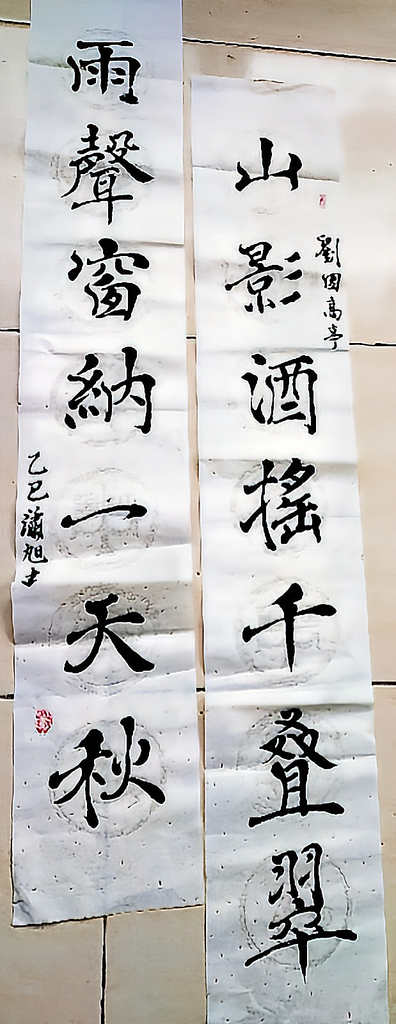 山影酒搖千叠翠
劉因高亭
雨聲窗納一天秋
乙巳 旭书